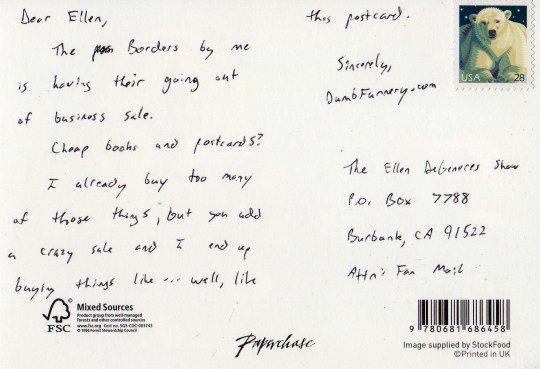 Dear Ellen,
The Borders by me
is having their going out
of business sale.
Cheap books and postcards?
I already buy too many
of those things, but you add
a crazy sale and I end up
buying things like ... well, like
this postcard.
Sincerely,
DumbFunnery.com
USA 28
The Ellen DeGeneres Show
P.O. Box 7788
Burbank, CA 91522
Attn: Fan Mail
FSC
Mixed Sources
Product group from well-managed
forests and other controlled sources
www.fsc.org Cert no. SGS-COC-003743
© 1996 Forest Stewardship Council
Paperchase
9 780681 686458
Image supplied by StockFood
©Printed in UK